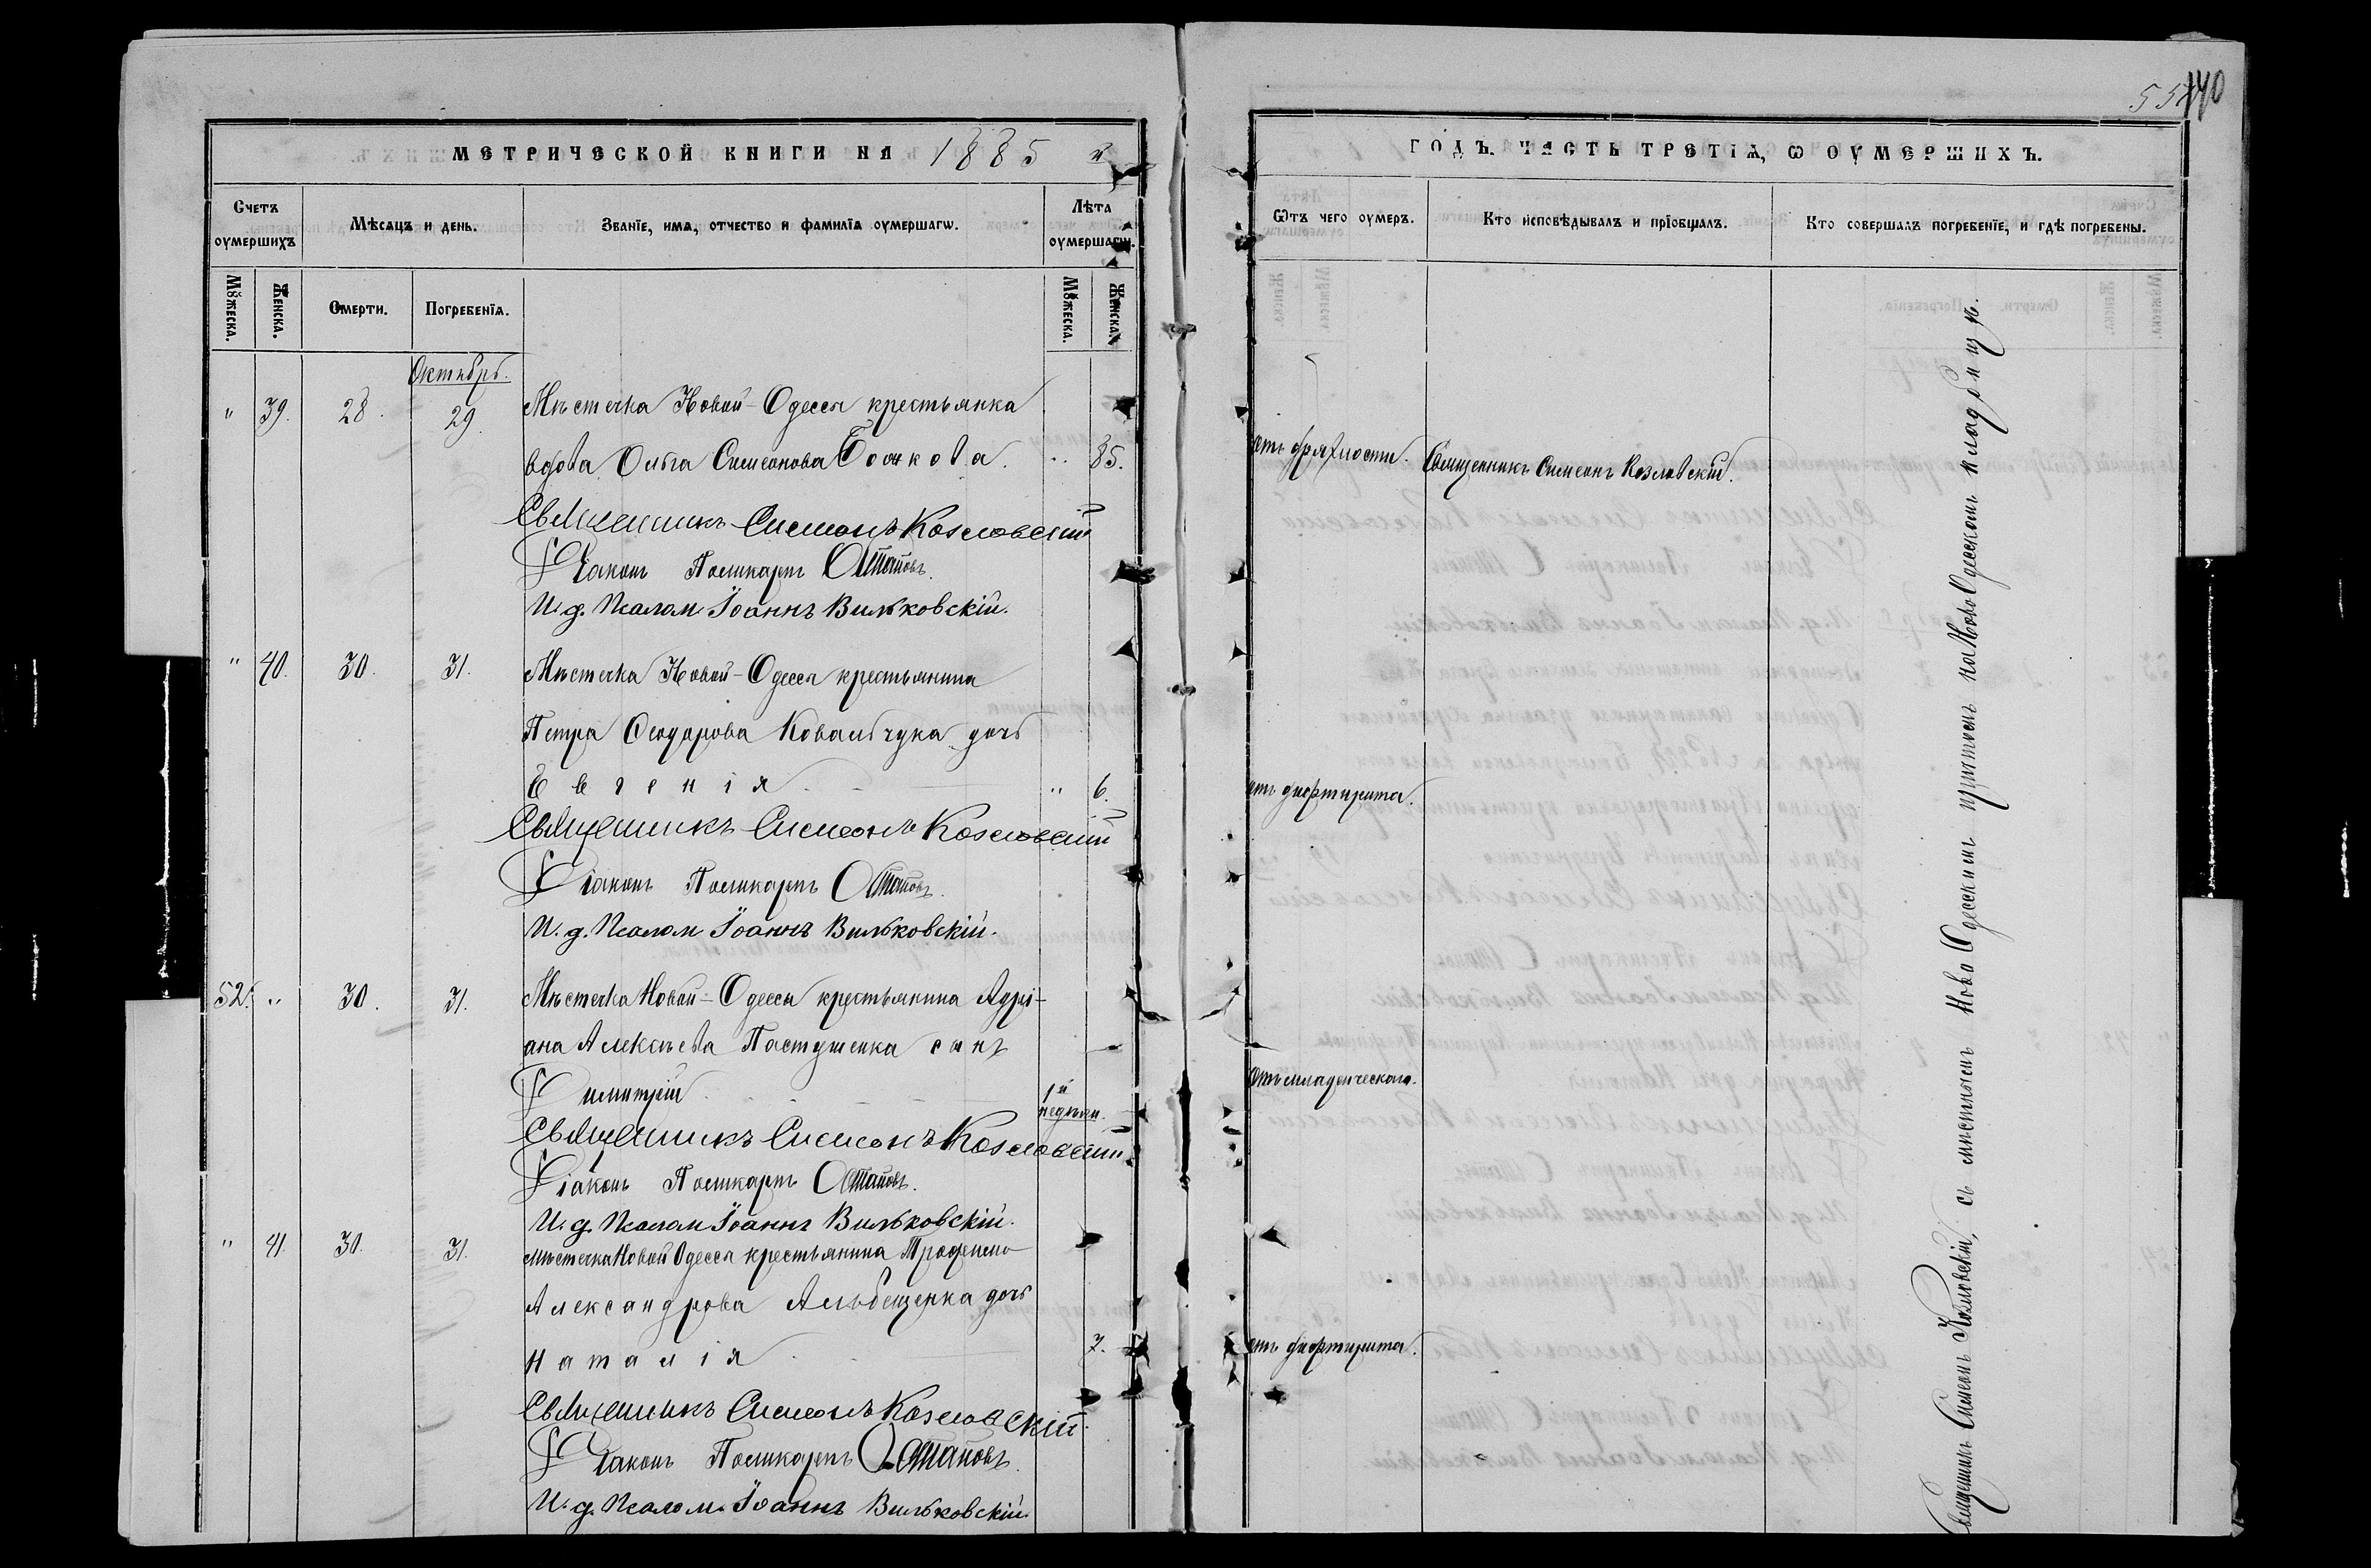 МЕТРИЧЕСКОЙ КНИГИ НА 1885 й
Счетъ оумершихъ
Мѣсяцъ и день.
Званїе, имя, отчество и фамилїя оумершагѡ.
Лѣта оумершагѡ.
Мꙋжеска.
Женска.
Смерти.
Погребенїя.
Мꙋжеска.
Женска.
Октябрь.
" 39. 28. 29. Мѣстечка Новой-Одессы крестьянка
вдова Ольга Симеонова Бочкова. " 85.
Священникъ Симеонъ Козловскій
Діаконъ Поликарпъ Остаповъ.
И. д. Псалом. Іоаннъ Вильковскій.
" 40. 30. 31. Мѣстечка Новой-Одессы крестьянина
Петра Ѳеодорова Ковальчука дочь
Евгенія " 6.
Священникъ Симеонъ Козловскій
Діаконъ Поликарпъ Остаповъ.
И. д. Псалом. Іоаннъ Вильковскій.
52. " 30. 31. Мѣстечка Новой-Одессы крестьянина Адрі-
ана Алексѣева Пастушенка сынъ
Димитрій 1й недѣли.
Священникъ Симеонъ Козловскій
Діаконъ Поликарпъ Остаповъ.
И. д. Псалом. Іоаннъ Вильковскій.
" 41. 30. 31. Мѣстечка Новой Одессы крестьянина
Александрова дочь
Наталія 7.
Священникъ Симеонъ Козловскій.
Діаконъ Поликарпъ Остаповъ.
И. д. Псалом. Іоаннъ Вильковскій.
140
ГОДЪ. ЧАСТЬ ТРЕТІЯ, Ѡ ОУМЕРШИХЪ.
Ѿтъ чего оумеръ.
Кто исповѣдывалъ и прїобщалъ.
Кто совершалъ погребенїе, и гдѣ погребены.
отъ дряхлости. Священникъ Симеонъ Козловскій.
отъ дифтирита.
отъ младенческого.
отъ дифтирита.
Священникъ Симеонъ Козловскій, съ мѣстнымъ Ново Одесскимъ причтомъ на Ново Одесскомъ кладбищѣ.